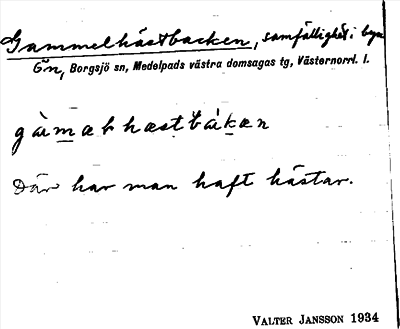 Gammelhästbacken, samfällighet i byn
Ön, Borgsjö sn, Medelpads västra domsagas tg, Västernorrl. l.
gàmabhæstbákæn
Där har man haft hästar.
VALTER JANSSON 1934